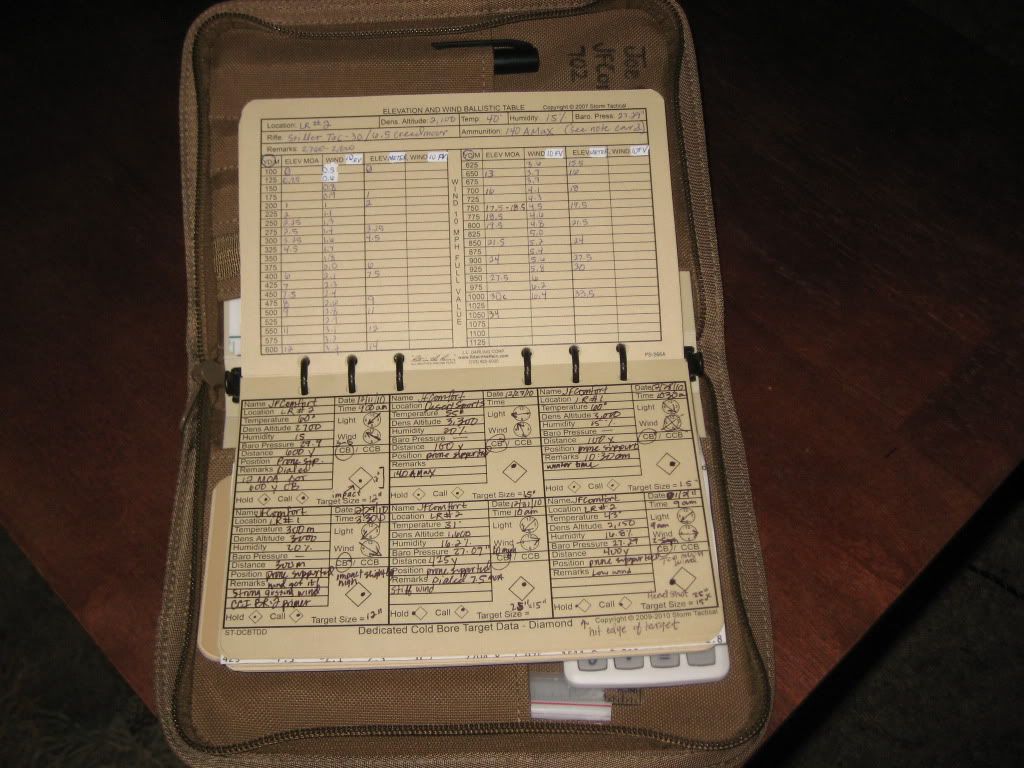 Joe
JFCo
702
ELEVATION AND WIND BALLISTIC TABLE Copyright © 2007 Storm Tactical
Location: LR #2 Dens. Altitude: 2,100 Temp: 40° Humidity: 15% Baro. Press: 27.29"
Rifle: Stiller Tac-30/6.5 creedmoor Ammunition: 140 AMax (see note card)
Remarks: 2760-2800
YD/M ELEV MOA WIND 10 FV ELEV METER WIND 10 FV
100 0 0.5 0
125 0.25 0.6
150 0.8
175 0.9 1
200 1 1 2
225 2 1.1
250 2.25 1.3
275 2.5 1.4 3.25
300 3.25 1.6 4.5
325 4.5 1.7
350 1.8
375 2.0 6
400 6 2.1 7.5
425 7 2.3
450 7.5 2.4
475 8 2.6 9
500 9 2.8 11
525 2.9
550 11 3.1 12
575 3.2
600 12 3.4 14
WIND 10 MPH FULL VALUE
YD/M ELEV MOA WIND 10 FV ELEV METER WIND 10 FV
625 3.6 15.5
650 13 3.7 16
675 3.9
700 16 4.1 18
725 4.3
750 17.5-18.5 4.5 19.5
775 18.5 4.6
800 19.5 4.8 21.5
825 5.0
850 21.5 5.2 24
875 5.4
900 24 5.6 27.5
925 5.8 30
950 27.5 6
975 6.2
1000 30 6.4 33.5
1025
1050 34
1075
1100
1125
J.L. DARLING CORP.
www.RiteintheRain.com
Name JFComfort Date 12/11/10
Location LR #2 Time 9:00 am
Temperature 60° Light
Dens Altitude 2700
Humidity 15 Wind
Baro Pressure 27.9
Distance 600 y CB / CCB
Position Prone sup.
Remarks Dialed
12 MOA for
600 y CB
impact
Hold Call Target Size = 12"
Name JFComfort Date 12/27/10
Location Desert Sports Time
Temperature 55° Light
Dens Altitude 3,300
Humidity 20% Wind
Baro Pressure —
Distance 100 y CB / CCB
Position prone supported
Remarks
140 AMAX
Hold Call Target Size = .5"
Name JFComfort Date 12/28/10
Location LR #1 Time 10:30am
Temperature Light
Dens Altitude 3,000
Humidity 15% Wind
Baro Pressure —
Distance 100 y CB / CCB
Position prone support
Remarks 10:30 am
winter time
Hold Call Target Size = 1.5
Name JFComfort Date 12/29/10
Location LR #1 Time 3:30
Temperature Light
Dens Altitude 3000
Humidity 20% Wind
Baro Pressure —
Distance 300 m CB / CCB
Position prone supported impact slightly
Remarks high
strong gusting wind
CCI BR-2 primer
Hold Call Target Size = 12"
Name JFComfort Date 12/31/10
Location LR #2 Time 10am
Temperature 31° Light
Dens Altitude 1,600
Humidity 16.2% Wind
Baro Pressure 27.07" 10 mph
Distance 425 y CB / CCB
Position prone supported
Remarks Dialed 7.5 MOA
stiff wind
Hold Call Target Size = 25"x15"
Name JFComfort Date
Location LR #2 Time 9 am
Temperature 43° Light
Dens Altitude 2,150 9am
Humidity 16.8% Wind
Baro Pressure 27.29
Distance 400 y CB / CCB
Position prone supported
Remarks Low wind wind
Head shot
Hold Call Target Size = 15"
ST-DCBTDD Dedicated Cold Bore Target Data - Diamond Copyright © 2009-2010 Storm Tactical
hit edge of target